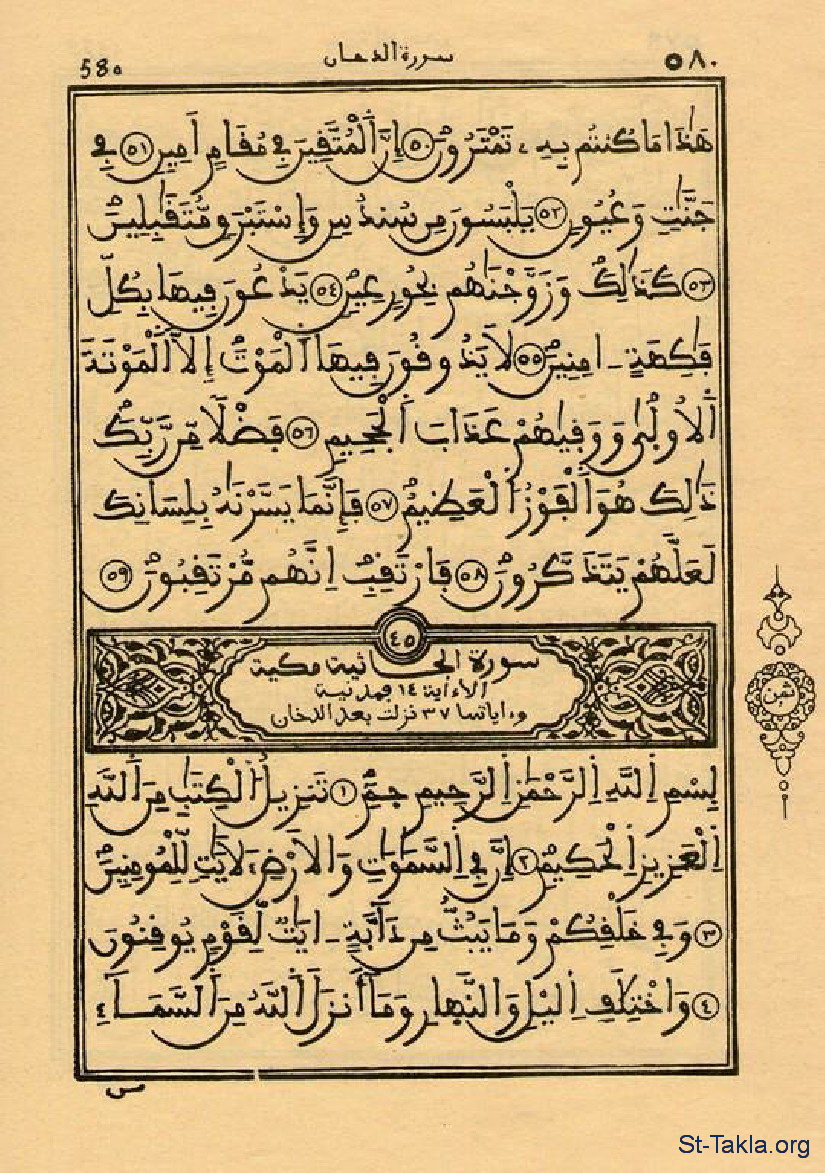 580 سورة الدخان ٥٨٠
هَٰذَا مَا كُنتُم بِهِۦ تَمْتَرُونَ ٥٠ إِنَّ ٱلْمُتَّقِينَ فِے مُقَامٍ أَمِينٍ ٥١ فِے
جَنَّٰتٍ وَعُيُونٍ ٥٢ يَلْبَسُونَ مِن سُندُسٍ وَإِسْتَبْرَقٍ مُّتَقَٰبِلِينَ
٥٣ كَذَٰلِكَ وَزَوَّجْنَٰهُم بِحُورٍ عِينٍ ٥٤ يَدْعُونَ فِيهَا بِكُلِّ
فَٰكِهَةٍ ـ امِنِينَ ٥٥ لَا يَذُوقُونَ فِيهَا ٱلْمَوْتَ إِلَّا ٱلْمَوْتَةَ
ٱلُاولَىٰ وَوَقَىٰهُمْ عَذَابَ ٱلْجَحِيمِ ٥٦ فَضْلًا مِّن رَّبِّكَ
ذَٰلِكَ هُوَ ٱلْفَوْزُ ٱلْعَظِيمُ ٥٧ فَإِنَّمَا يَسَّرْنَٰهُ بِلِسَانِكَ
لَعَلَّهُمْ يَتَذَكَّرُونَ ٥٨ فَارْتَقِبِ اِنَّهُم مُّرْتَقِبُونَ ٥٩
٤٥
سورة الجاثية مكية
الا ءاية ١٤ فمدنية
وءاياتها ٣٧ نزلت بعد الدخان
ثمن
بِسْمِ ٱللَّهِ ٱلرَّحْمَٰنِ ٱلرَّحِيمِ حَمِٓ ١ تَنزِيلُ ٱلْكِتَٰبِ مِنَ ٱللَّهِ
ٱلْعَزِيزِ ٱلْحَكِيمِ ٢ إِنَّ فِے ٱلسَّمَٰوَٰتِ وَالَارْضِ لَأٓيَٰتٍ لِّلْمُومِنِينَ
٣ وَفِے خَلْقِكُمْ وَمَا يَبُثُّ مِن دَآبَّةٍ ـ ايَٰتٌ لِّقَوْمٍ يُوقِنُونَ
٤ وَاخْتِلَٰفِ ٱليْلِ وَالنَّهِارِ وَمَآ أَنزَلَ ٱللَّهُ مِنَ ٱلسَّمَآءِ
St-Takla.org